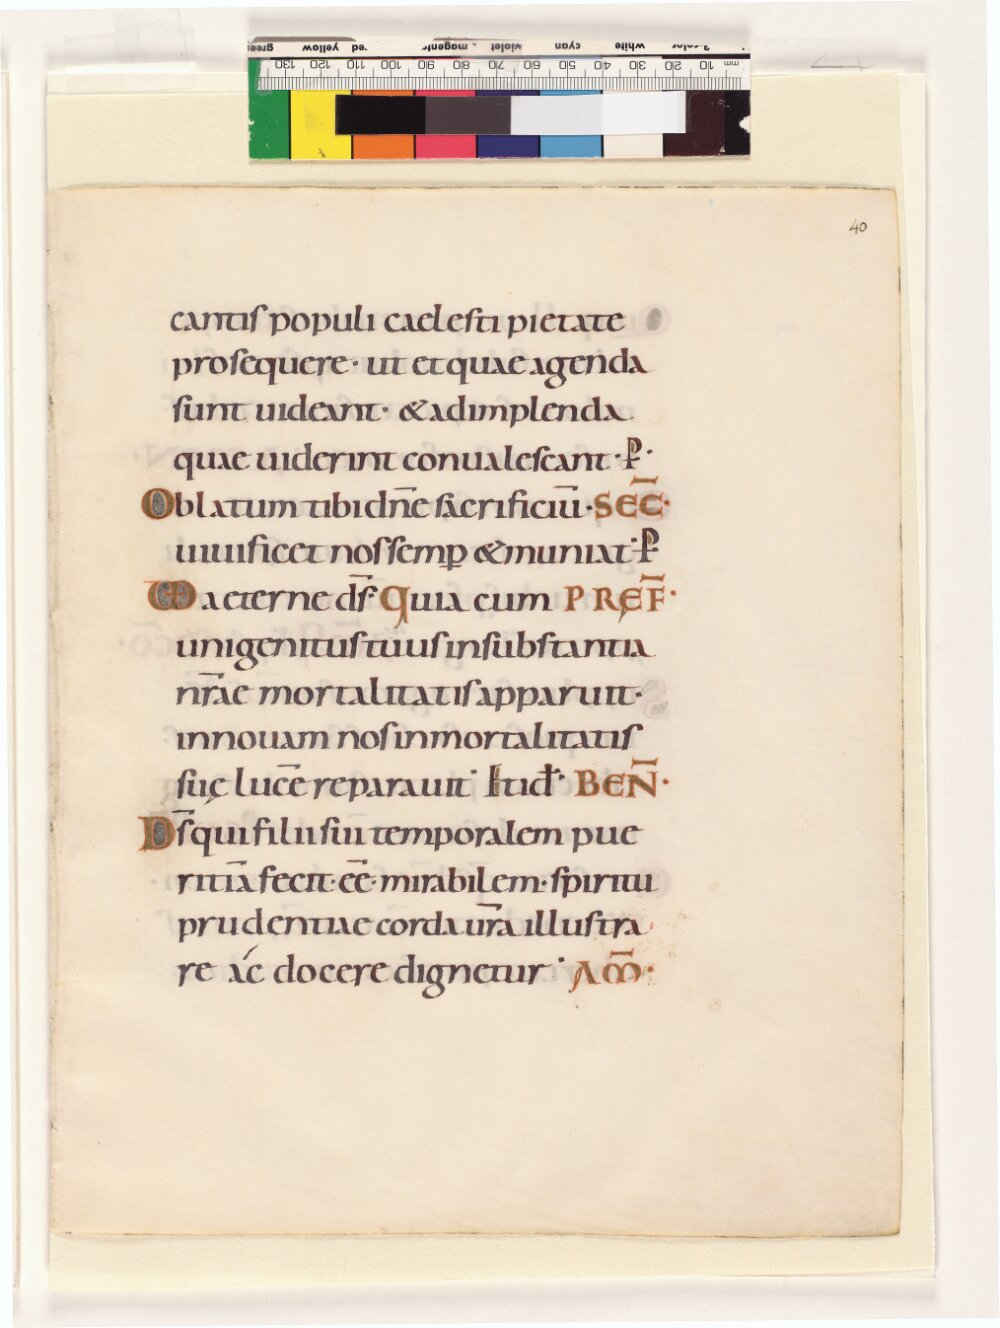 green yellow red magenta violet cyan white 3-color
130 120 110 100 90 80 70 60 50 40 30 20 10 mm
40
cantis populi caelesti pietate
prosequere · ut et quae agenda
sunt uideant · & adimplenda
quae uiderint conualescant · P ·
Oblatum tibi dn̄e sacrificiū · SEC̄ ·
uiuificet nos semp̱ & muniat · P
UD aeterne ds̄ Quia cum PREF̄ ·
unigenitus tuus in substantia
nr̄ae mortalitatis apparuit ·
in nouam nos inmortalitatis
suę lucē reparauit · Et id̄ · BEN̄ ·
Ds̄ qui filii sui temporalem pue
ritiā fecit · eē · mirabilem · spiritu
prudentiae corda ur̄a illustra
re ac docere dignetur · AM̄ ·